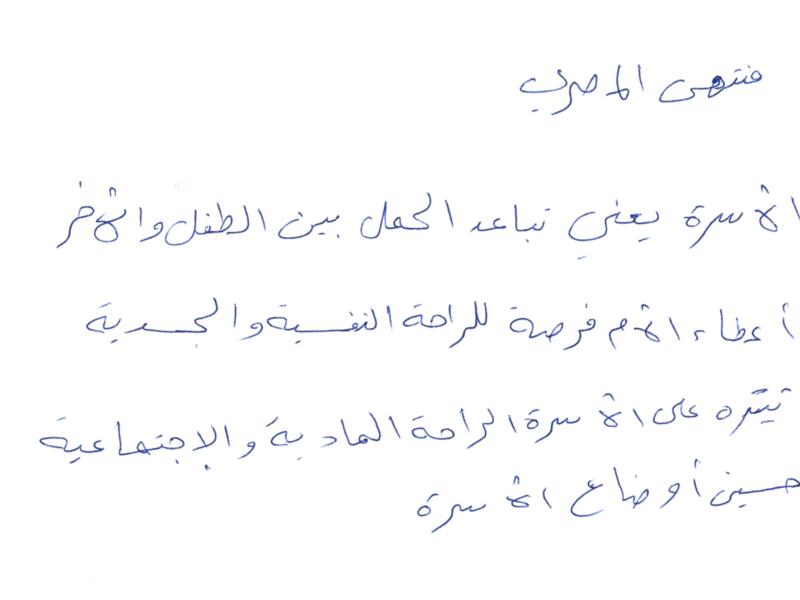 منتهى المصري
الأسرة يعني تباعد الحمل بين الطفل والأخر
أعطاء الأم فرصة للراحة النفسية والجسدية
على الأسرة الراحة المادية والإجتماعية
حسين أوضاع الأسرة